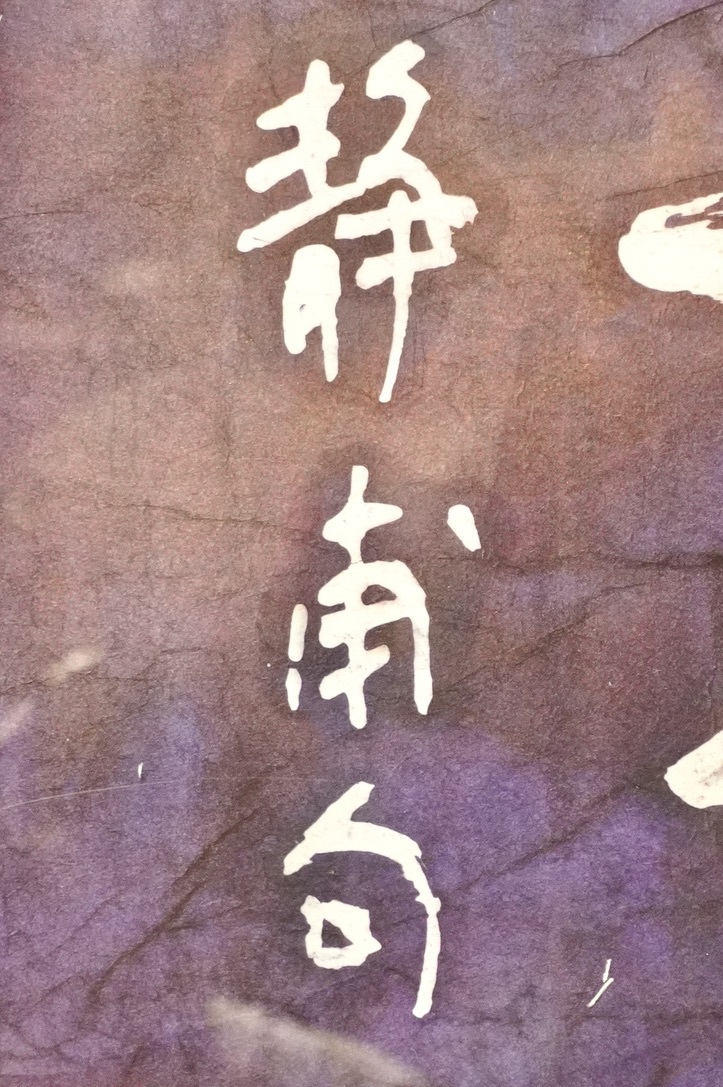 静甫句